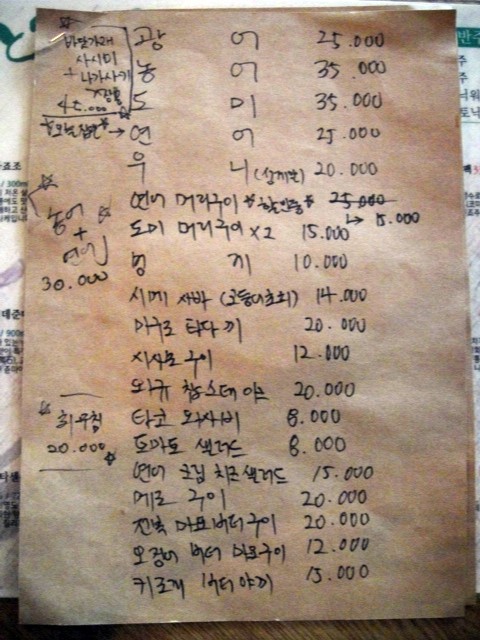 바닷가재
사시미
+ 나가사키
짬뽕
45.000
광 어 25.000
농 어 35.000
도 미 35.000
연 어 25.000
우 니 (성게알) 20.000
연어 머리구이 *할인중* 25.000
↳ 15.000
도미 머리구이 X2 15.000
멍 게 10.000
시메 사바 (고등어초회) 14.000
마구로 타다끼 20.000
시샤모구이 12.000
와규 찹스테이크 20.000
타코 와사비 8.000
토마토 샐러드 8.000
연어 크림 치즈 샐러드 15.000
메로 구이 20.000
전복 마요버터구이 20.000
오징어 버터 마요구이 12.000
키조개 버터야끼 15.000
농어
+
연어
30.000
20.000